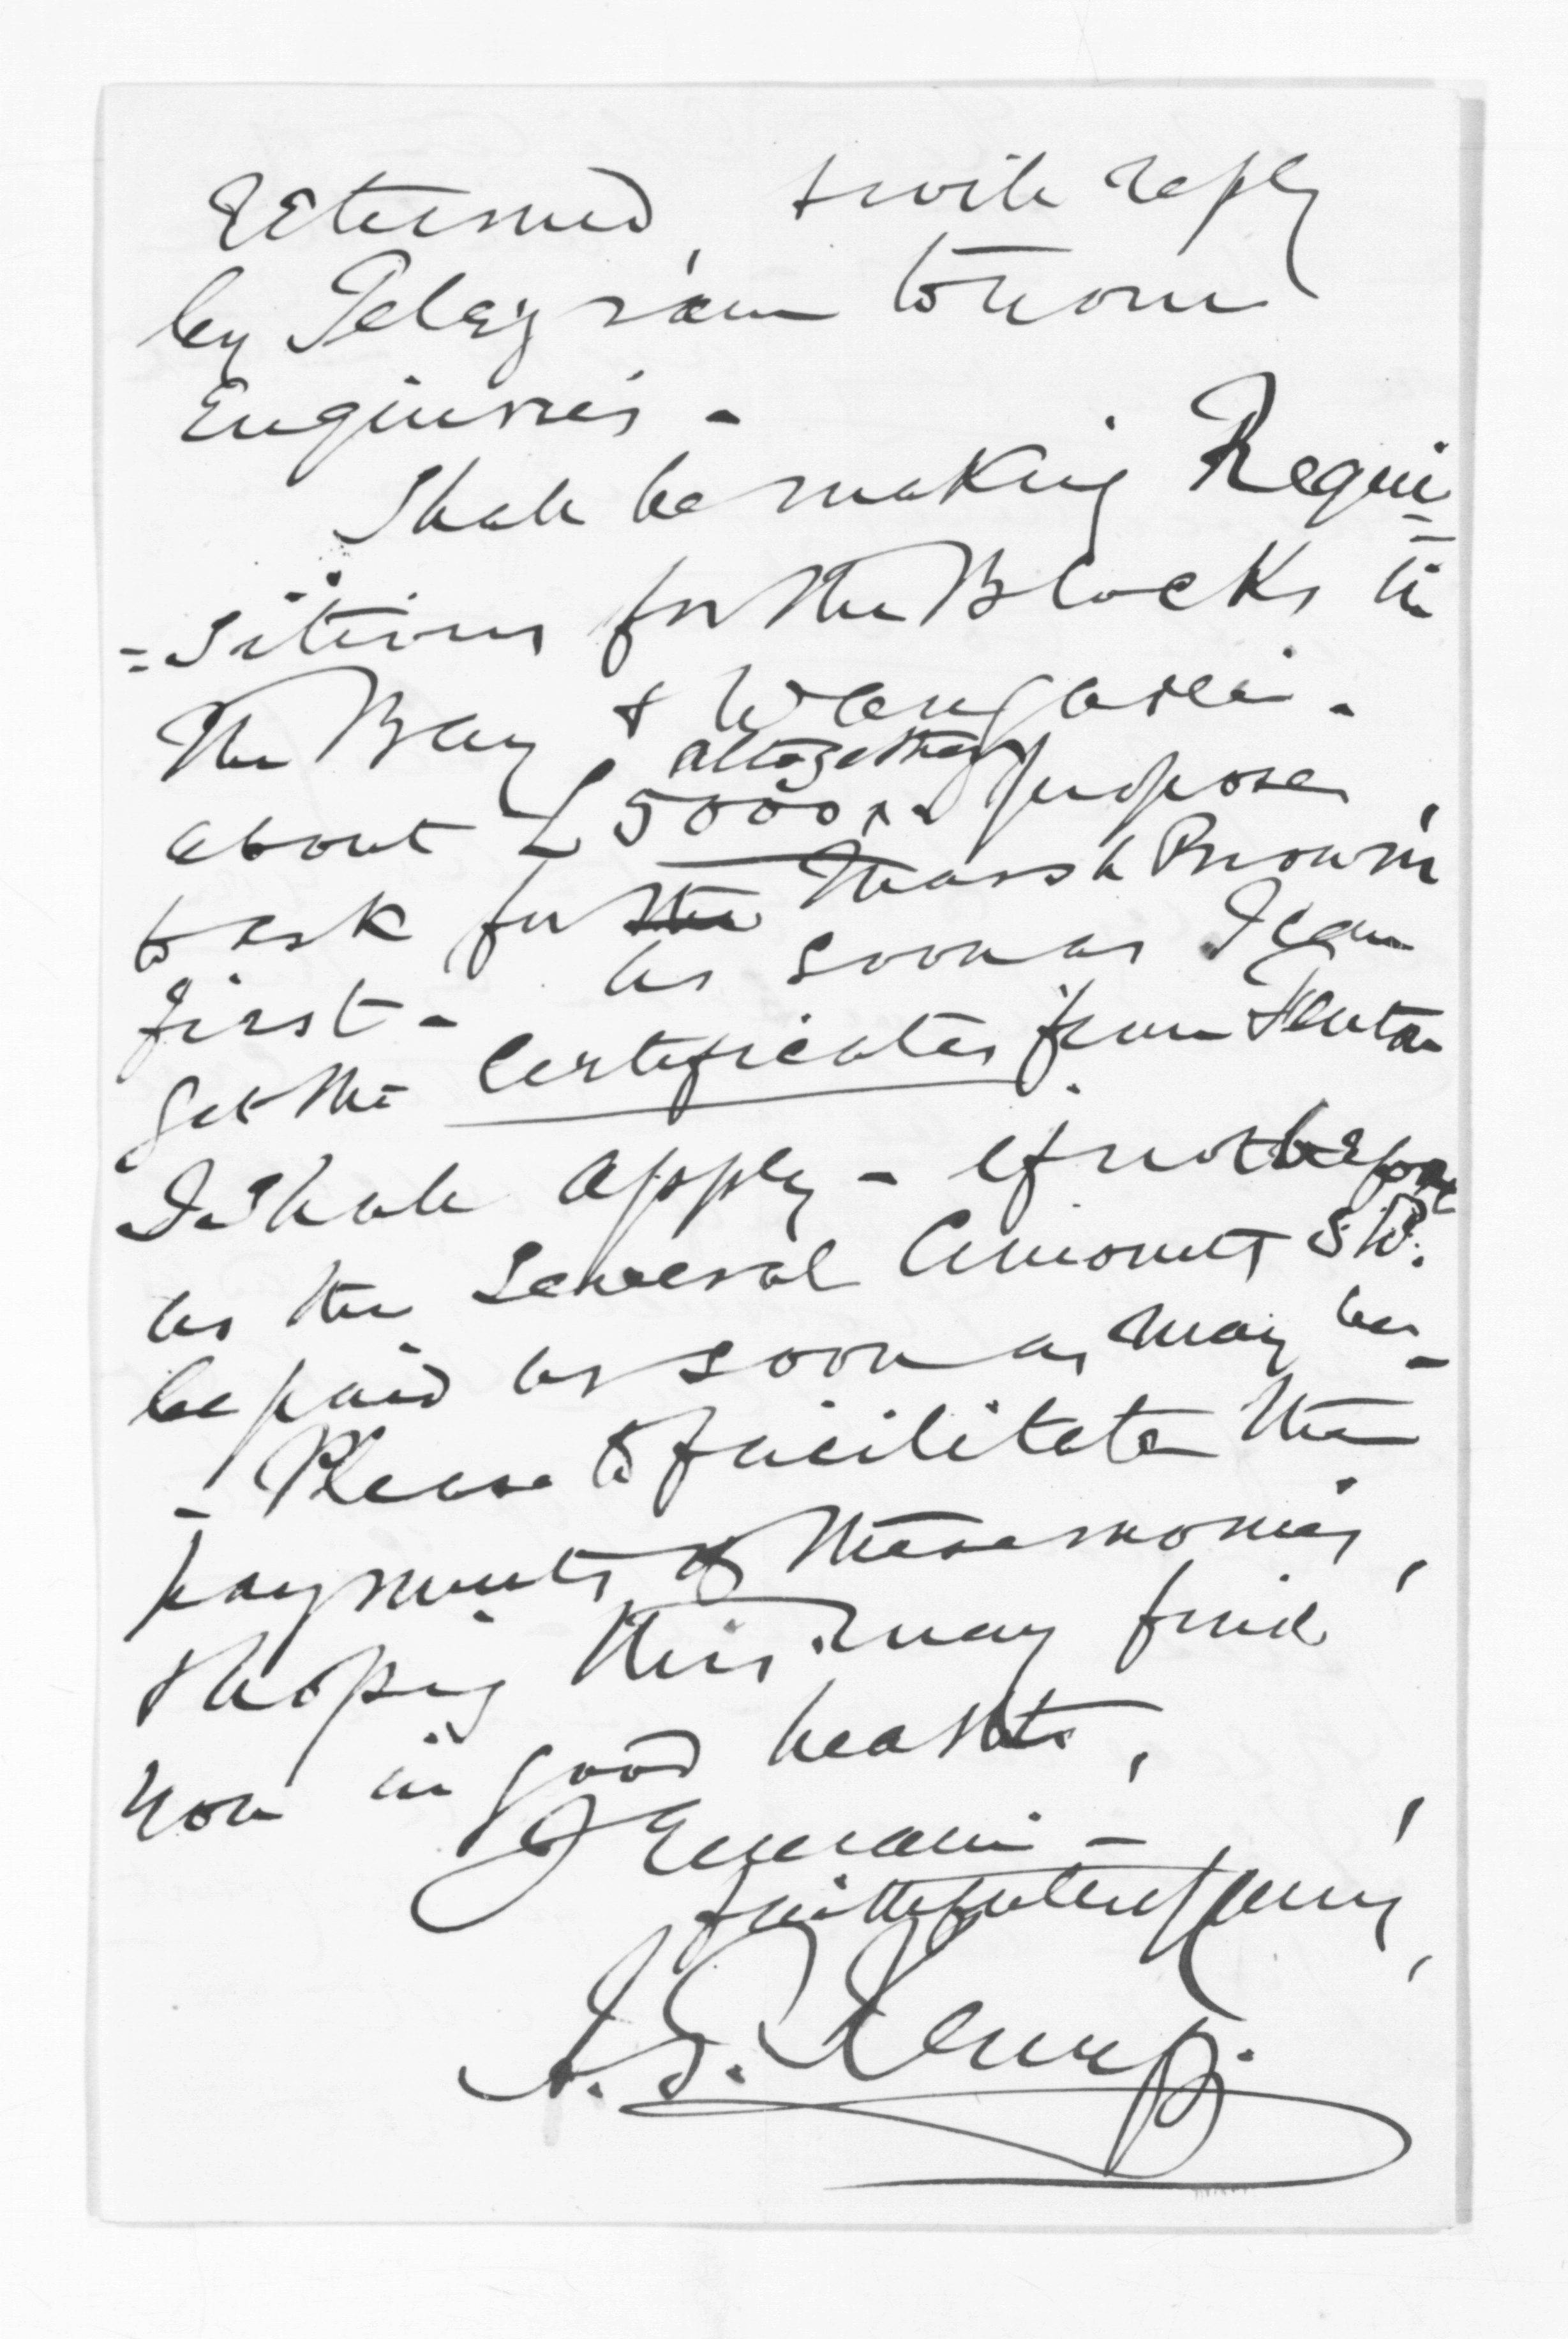 returned, & will reply
by Telegram to your
Enquiries -
Shall be making Requi
=sitions for the Blocks in
the Bay & Whangarei.
altogether
about £5000, & propose,
to ask for the Marsh Brown's
first - As soon as I can
get the Certificates from Fenton
I shall apply - if not before
as the several Amounts Shd.
be paid as soon as may be -
- Please to facilitate the
payments of these monies,
& hoping this may find
you in good health,
I remain -
faithfully yours,
H. T. Kemp.